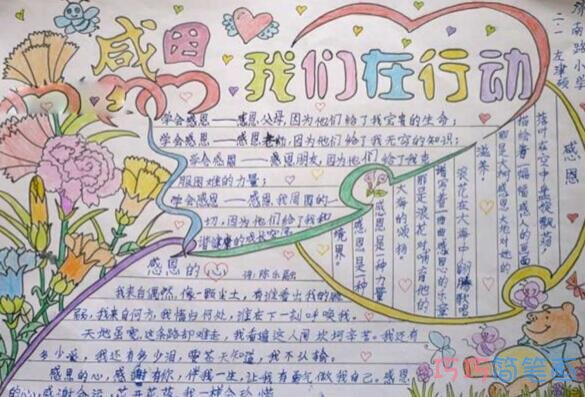 感恩
我们在行动
东南路小学
二一 左建硕
学会感恩——感恩父母,因为他们给了我宝贵的生命;
学会感恩——感恩老师,因为他们给了我无穷的知识;
学会感恩——感恩朋友,因为他们给了我克
服困难的力量;
学会感恩——感恩我周围的一
切,因为他们给了我和
谐健康的成长空间
感恩
落叶在空中盘旋飘舞
描绘着一幅幅感人的画面
那是大树感恩大地对她的
滋养;
浪花在大海中奔腾歌唱
谱写着一曲曲感恩的乐章
那是浪花对哺育他的
大海的颂扬。
感恩是一种力量
感恩是一种
境界。
感恩的心
词:陈乐融
我来自偶然,像一颗尘土,有谁看出我的脆
弱,我来自何方,我情归何处,谁在下一刻呼唤我。
天地虽宽,这条路却难走,我看遍这人间坎坷辛苦。我还有
多少爱,我还有多少泪,要苍天知道,我不认输。
感恩的心,感谢有你,伴我一生,让我有勇气做我自己。感恩
的心,感谢命运,花开花落,我一样会珍惜
巧巧简笔画